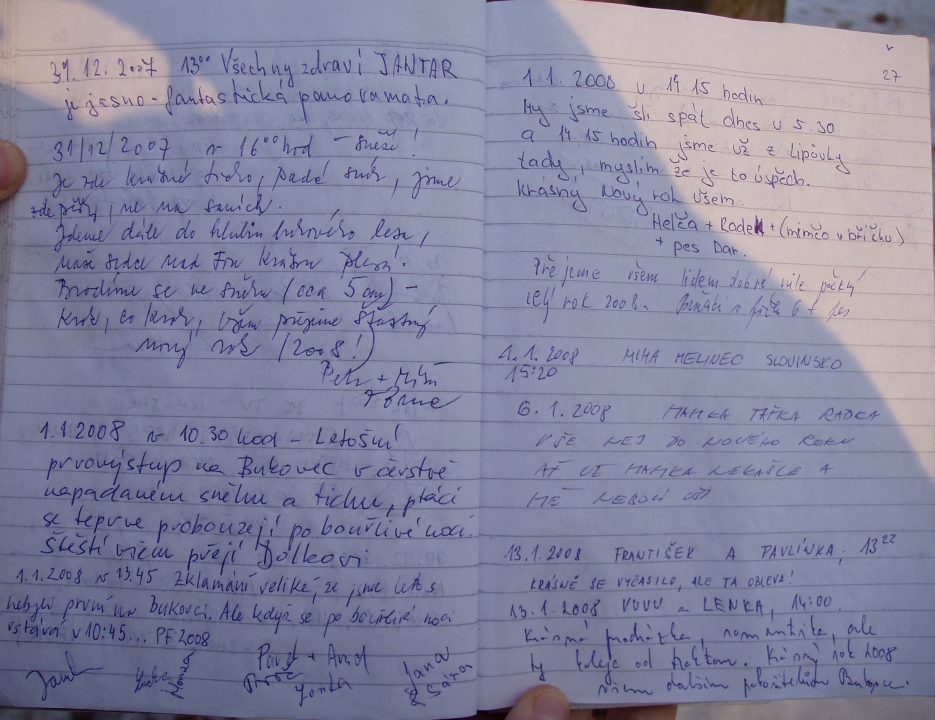 31.12.2007 13⁰⁰ Všechny zdraví JANTAR
je jasno - fantastická panoramata.
31/12/2007 v 16⁰⁰ hod - sněží!
Je zde krásně, padá sníh, jsme
zde pěšky, ne na saních.
Jdeme dále do hlubin bukového lesa,
Brodíme se ve sněhu (cca 5 cm) -
krok, co krok, všem přejeme šťastný
nový rok (2008!)
Petr +
1.1.2008 v 10.30 hod - Letošní
prvovýstup na Bukovec v čerstvě
napadaném sněhu a tichu, ptáci
se teprve probouzejí po bouřlivé noci.
Štěstí všem přejí Dolkovi
1.1.2008 v 13,45 zklamání veliké, že jsme letos
nebyli první na Bukovci. Ale když se po bouřlivé noci
vstává v 10:45... PF 2008
Jana
Lenka
27
1.1. 2008 v 14.15 hodin
My jsme šli spát dnes v 5.30
a 14.15 hodin jsme už z Lipůvky
tady, myslím že je to úspěch.
Krásny Nový rok všem.
Helča + Radek + (mimčo v bříšku)
+ pes Dar.
Přejeme všem lidem dobré vůle pěkný
celý rok 2008. 6 + pes
1.1.2008 MIHA MELINEC SLOVINSKO
15:20
6.1.2008 MAMKA TAŤKA RADKA
VŠE NEJ DO NOVÉHO ROKU
AŤ UŽ MAMKA NEKAŠLE A
MĚ NEBOLÍ
13.1.2008 FRANTIŠEK A PAVLÍNKA, 13²²
KRÁSNĚ SE VYČASILO, ALE TA OBLEVA!
13.1.2008 VUVU a LENKA, 14:00.
Krásná procházka, romantika, ale
ty koleje od traktoru. Krásný rok 2008
všem dalším pokořitelům Bukovce.